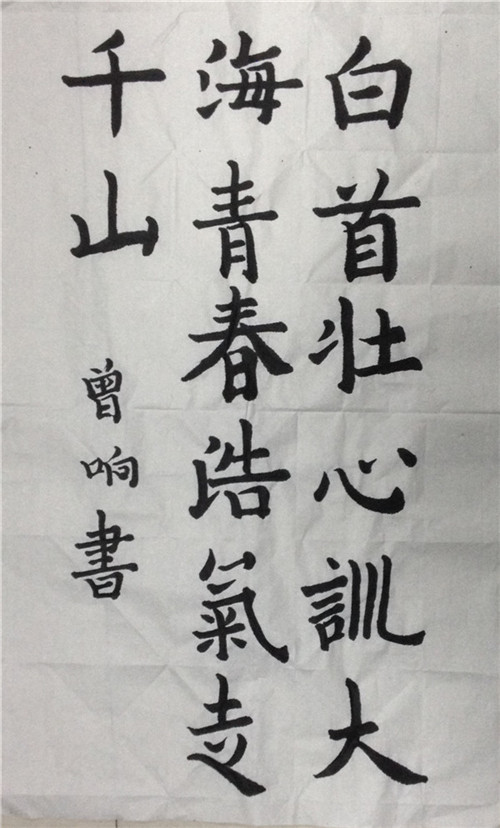 白首壮心訓大
海青春浩氣走
千山
曾响書